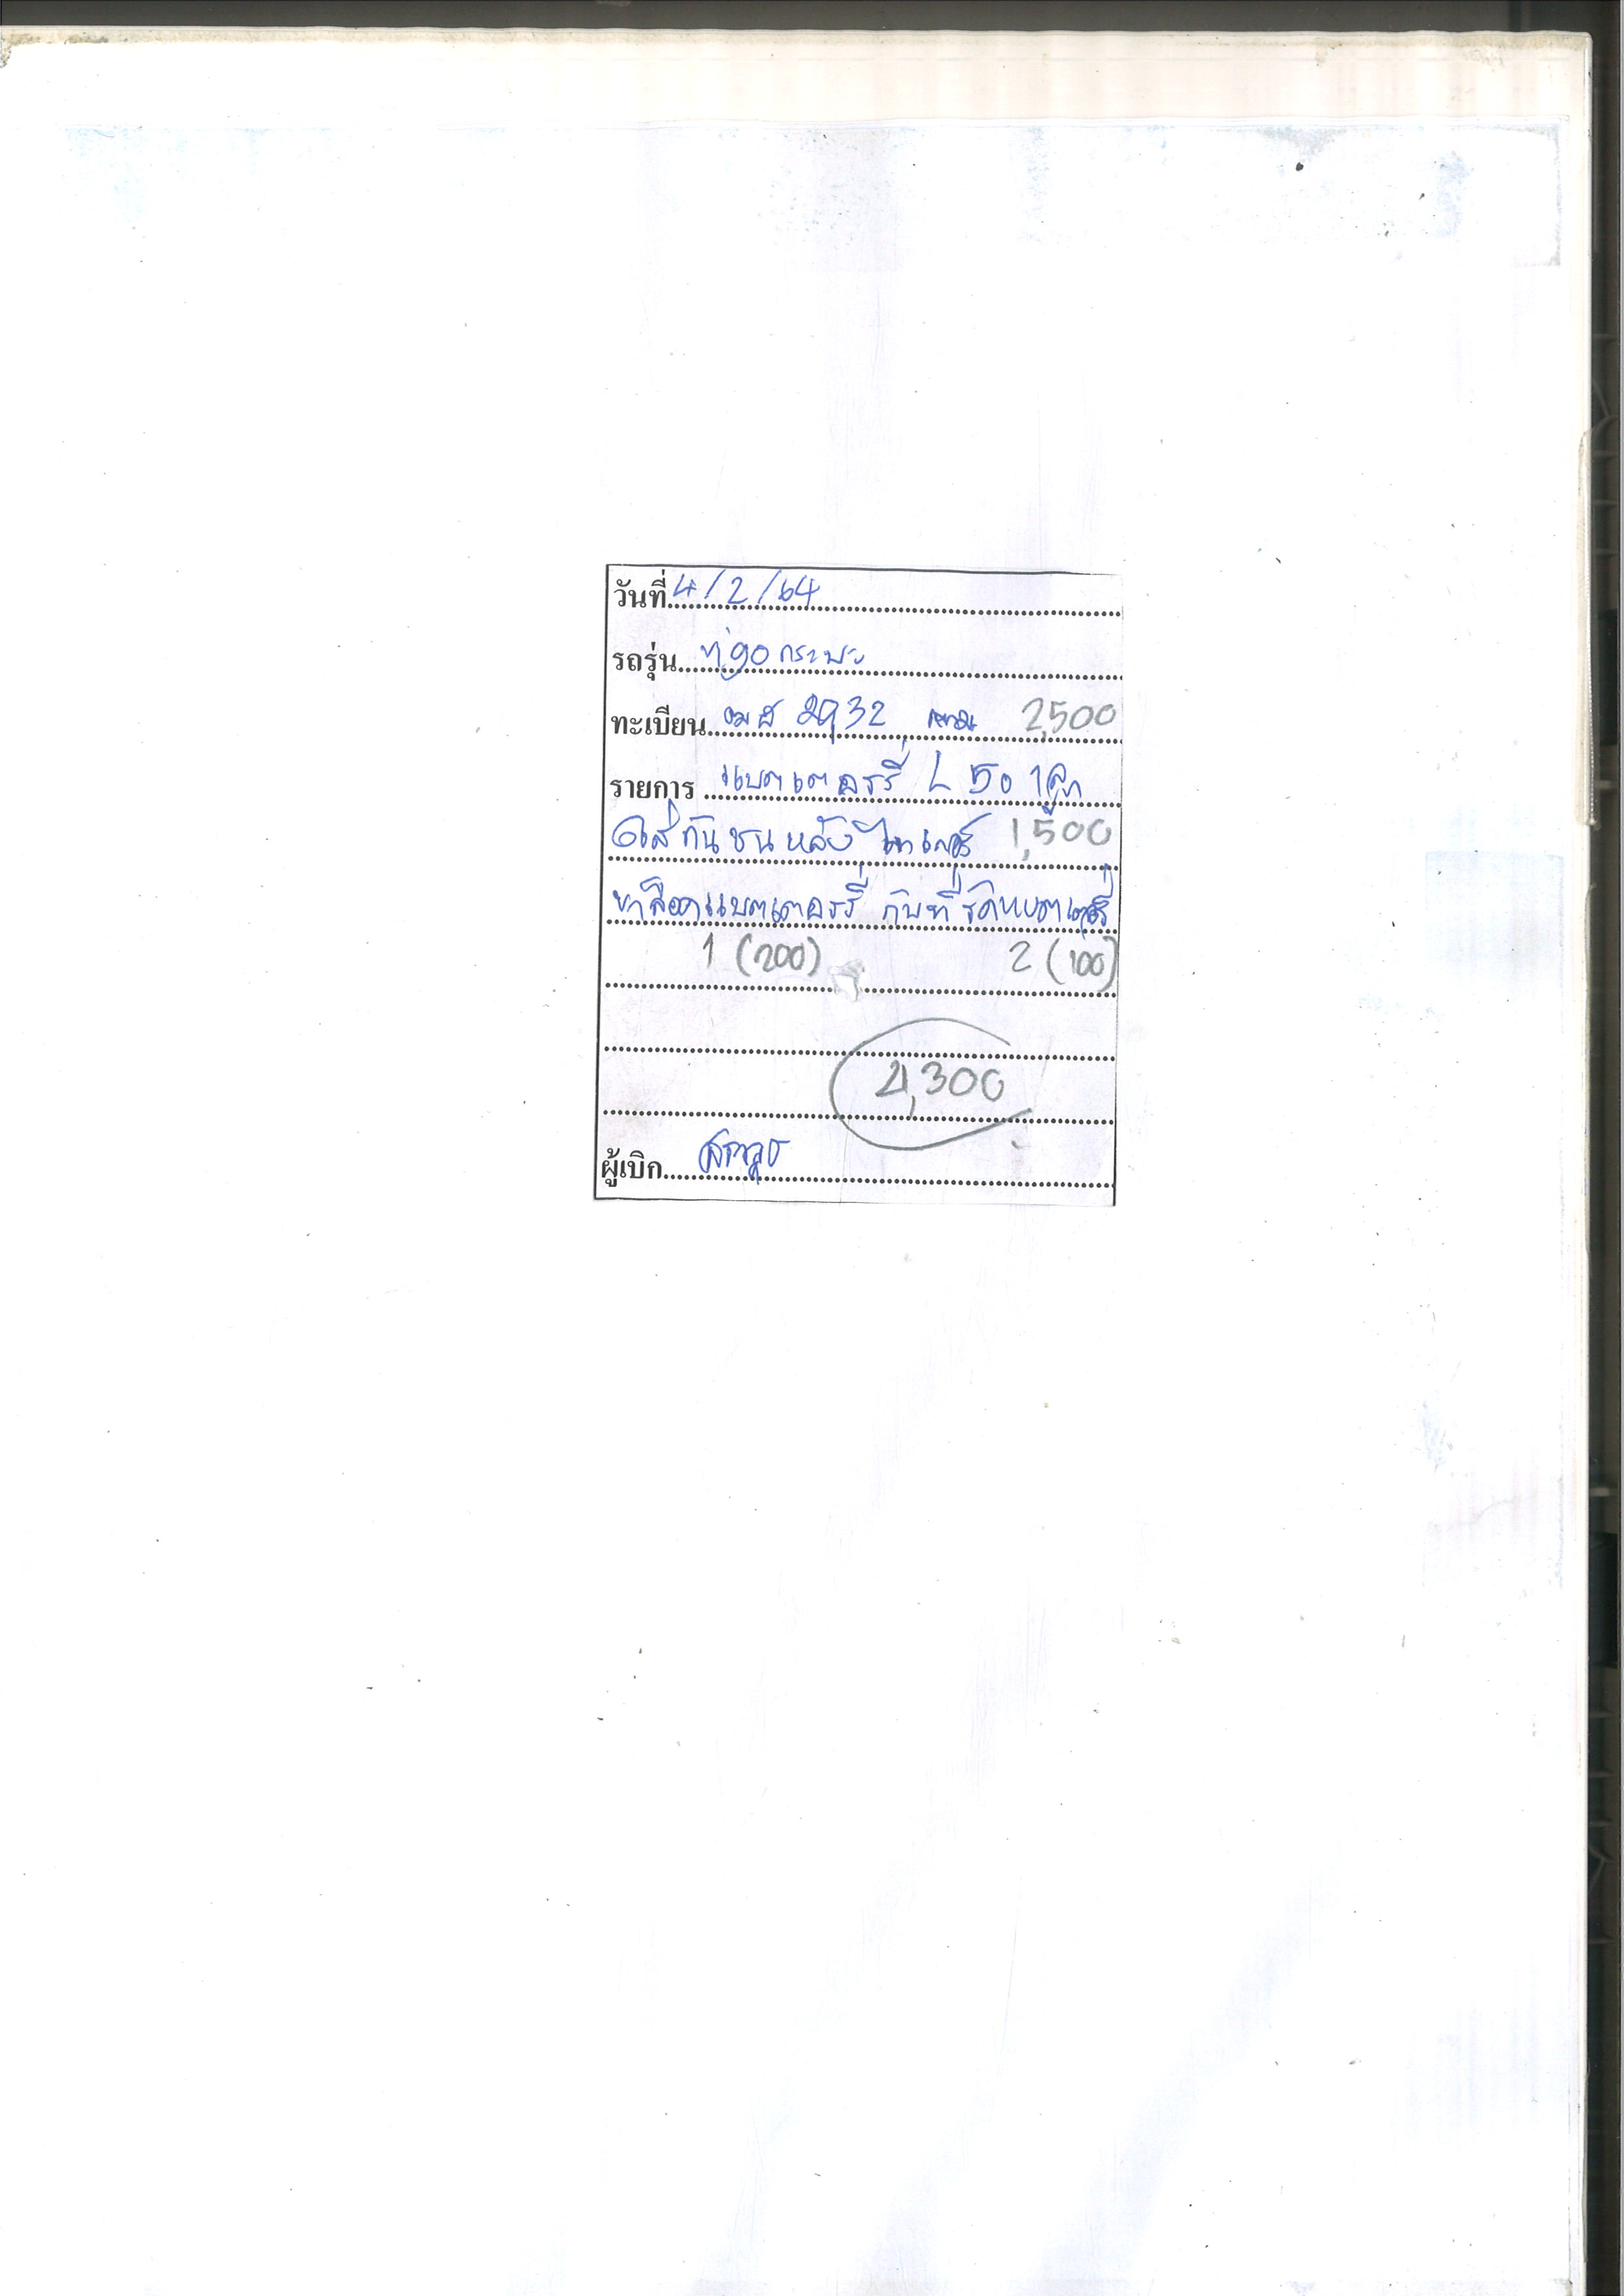 วันที่ 4/2/64
รถรุ่น ท่90 กระบะ
ทะเบียน 2932 2,500
รายการ แบตเตอรรี่ L 50 1ลูก
ใส่กันชนหลัง ไทเกอร์ 1,500
ขาล็อคแบตเตอรรี่ กับที่รัดแบตเตอรี่
1 (200) 2 (100)
4,300
ผู้เบิก